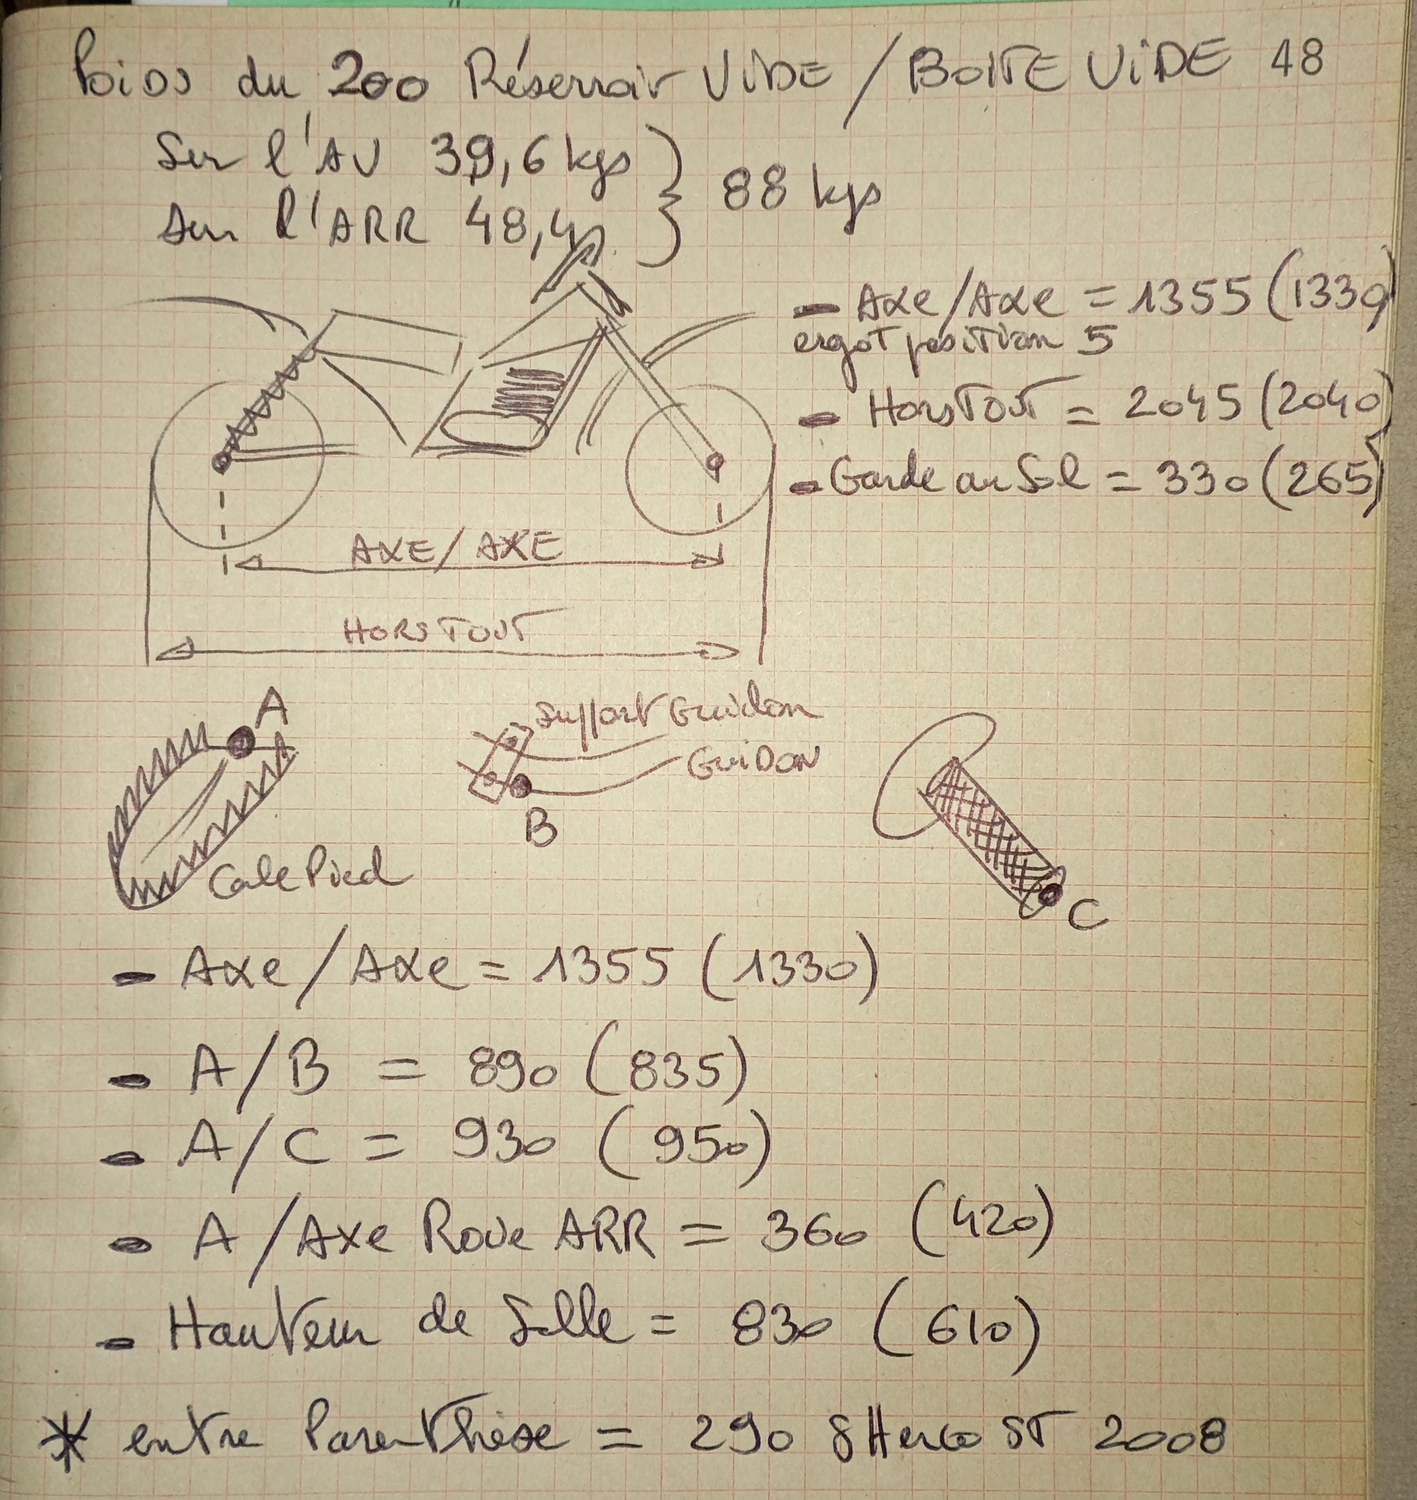 Poids du 200 Réservoir VIDE / BOITE VIDE 48
Sur l'AV 39,6 kgs
88 kgs
Sur l'ARR 48,4
- Axe/Axe = 1355 (1330)
ergot position 5
- Hors Tout = 2045 (2040)
- Garde au Sol = 330 (265)
AXE / AXE
HORS TOUT
A
Support Guidon
GUIDON
B
Cale Pied
C
- Axe / Axe = 1355 (1330)
- A/B = 890 (835)
- A/C = 930 (950)
- A / Axe Roue ARR = 360 (420)
- Hauteur de Selle = 830 (610)
* entre Parenthèse = 290 SHerco ST 2008